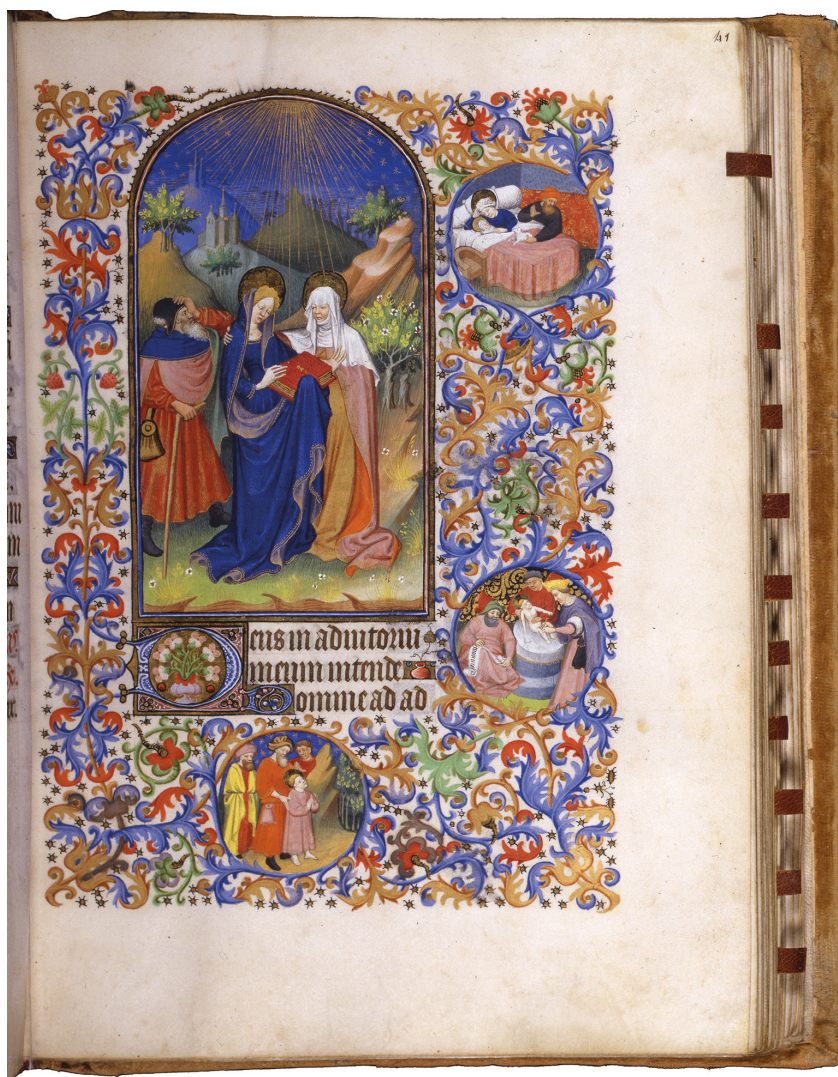 41
Deus in adiutoriu
meum intende
Domine ad ad